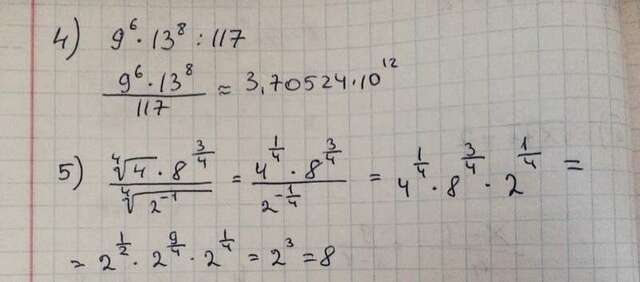 4) 9⁶ · 13⁸ : 117
(9⁶ · 13⁸)/117 ≈ 3,70524 · 10¹²
5) (⁴√4 · 8^(3/4))/(⁴√(2⁻¹)) = (4^(1/4) · 8^(3/4))/(2^(-1/4)) = 4^(1/4) · 8^(3/4) · 2^(1/4) =
= 2^(1/2) · 2^(9/4) · 2^(1/4) = 2³ = 8